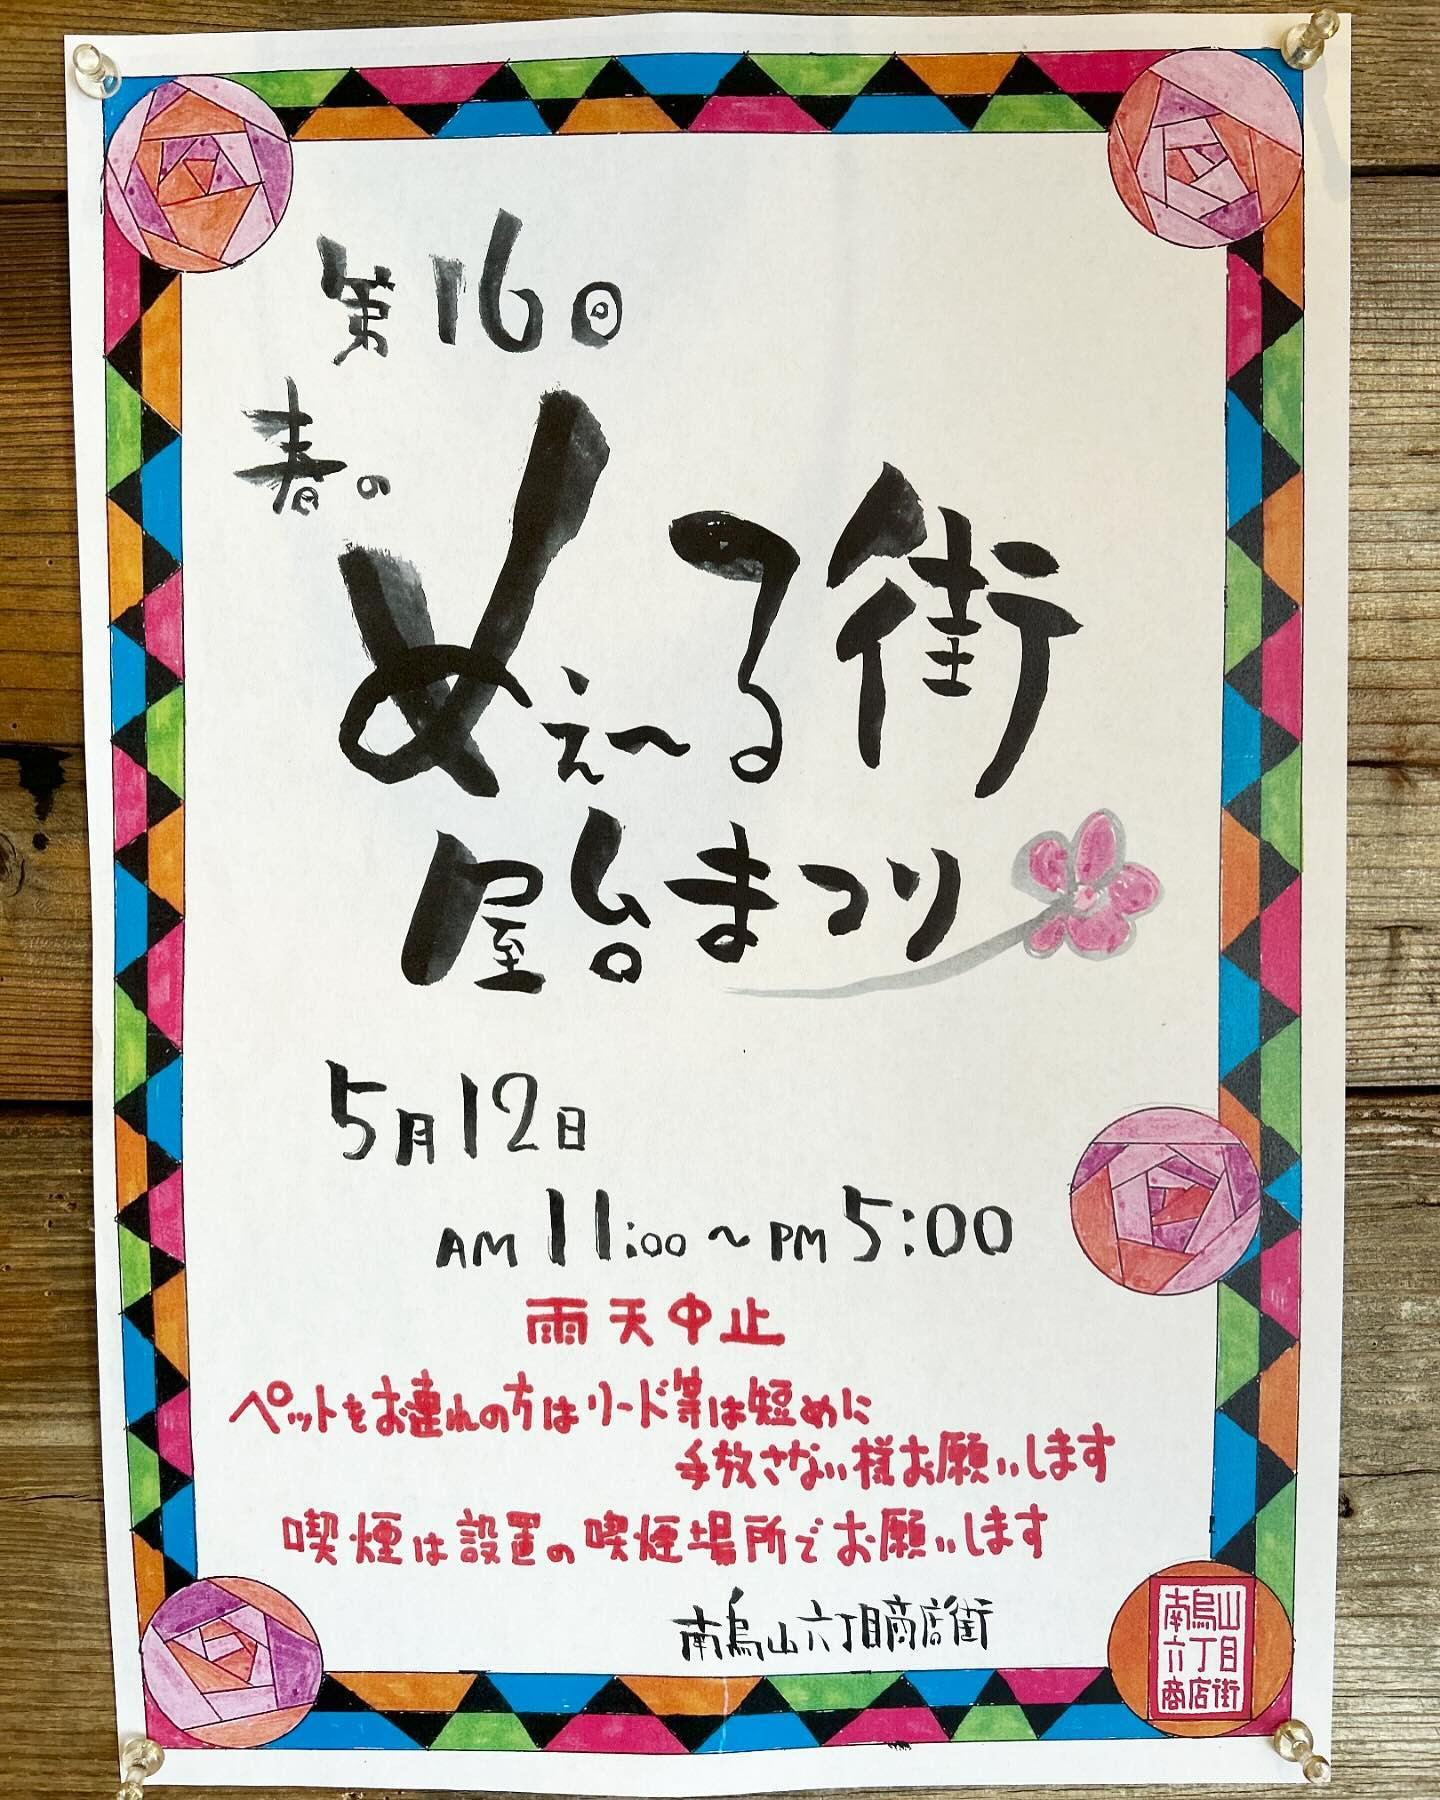 第16回
春の
めぇ〜る街
屋台まつり
5月12日
AM 11:00 〜 PM 5:00
雨天中止
ペットをお連れの方はリード等は短めに
手放さない様お願いします
喫煙は設置の喫煙場所でお願いします
南烏山六丁目商店街
南烏山
六丁目
商店街